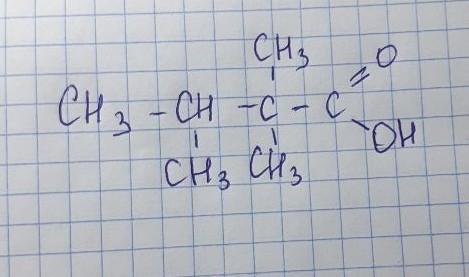 CH3
CH3 - CH - C - C = O
OH
CH3 CH3